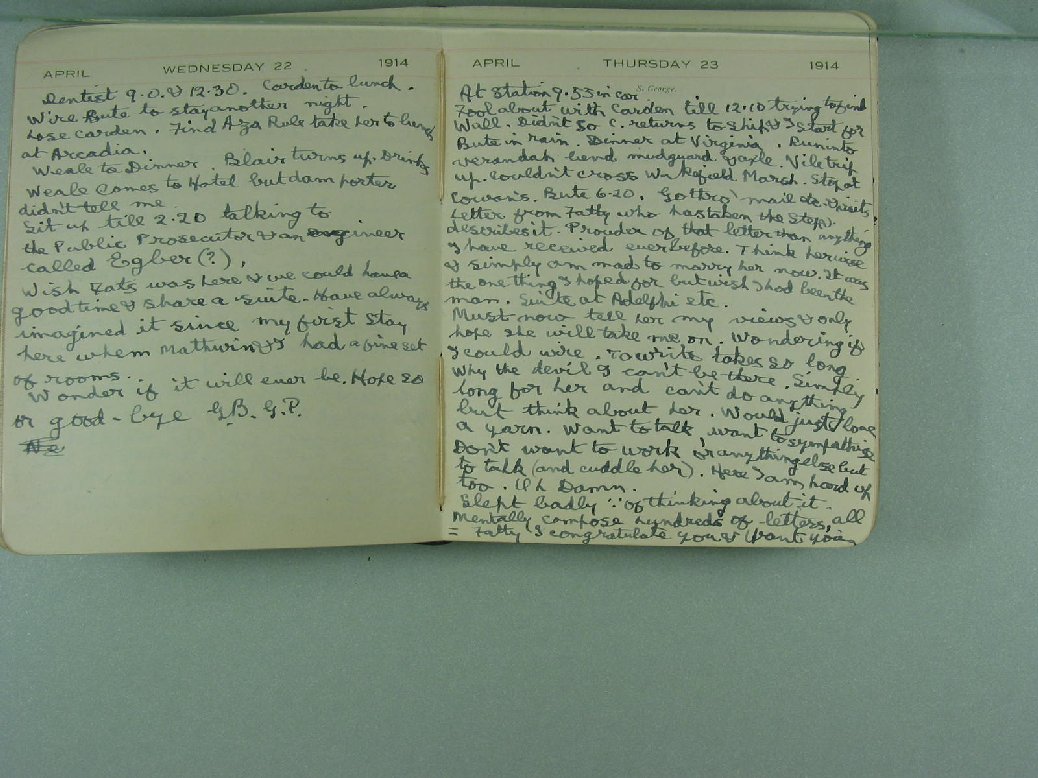 APRIL WEDNESDAY 22 1914
Dentist 9.0. & 12.30. Carden to lunch.
Wire Bute to stay another night.
Lose Carden. Find Aga Rule take her to
at Arcadia.
Weale to Dinner. Blair turns up. Drinks
Weale comes to Hotel but dam porter
didn't tell me.
Sit up till 2.20 talking to
the Public Prosecutor & an engineer
called Egber (?).
Wish Fats was here & we could have a
good time & share a suite. Have always
imagined it since my first stay
here when Mathwin & I had a fine set
of rooms.
Wonder if it will ever be. Hope so
or good-bye G.B. G.P.
APRIL THURSDAY 23 1914
S. George.
At Station 9.55 in car.
Fool about with Carden till 12.10 trying to find
Wall. Didn't so C. returns to Ship & I start for
Bute in rain. Dinner at Virginia. Run into
verandah bend mudguard. Vile trip
up. Couldn't cross Wakefield Marsh. Stop at
Cowan's. Bute 6.20. mail etc.
Letter from Fatty who has taken the step &
describes it. Prouder of that letter than anything
I have received ever before. Think her
& simply am mad to marry her now. It was
the one thing I hoped for but wish I had been the
man. Suite at Adelphi etc.
Must now tell her my views & only
hope she will take me on. Wondering if
I could wire. To write takes so long.
Why the devil I can't be there. Simply
long for her and can't do anything
but think about her. Would just love
a yarn. Want to talk, want to sympathise
Don't want to work or anything else but
to talk (and cuddle her). Here I am hard up
too. Oh Damn.
Slept badly ∵ of thinking about it.
Mentally compose hundreds of letters, all
= Fatty I congratulate you & want you